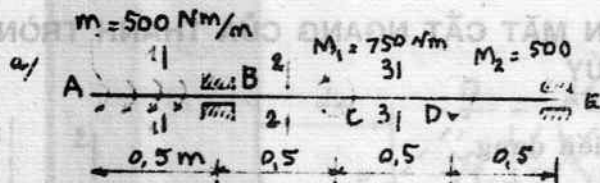 m = 500 Nm/m
M₁ = 750 Nm
M₂ = 500
a/
1 2 3
A B C D E
1 2 3
0,5 m 0,5 0,5 0,5